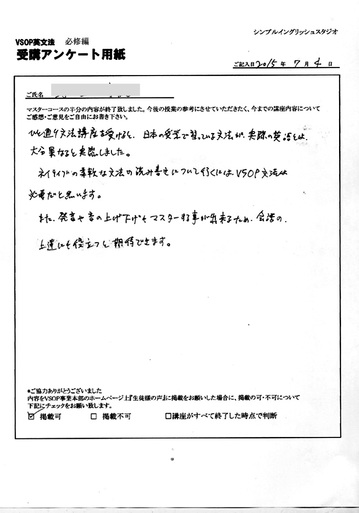 シンプルイングリッシュスタジオ
VSOP英文法 必修編
受講アンケート用紙
ご記入日 2015 年 7 月 4 日
ご氏名
マスターコースの半分の内容が終了致しました。今後の授業の参考にさせていただきたく、今までの講座内容について
ご感想・ご意見をご自由にお書き下さい。
ひと通り文法講座を受けると、日本の受業で習っている文法が、実際の英語とは、
大分異なると実感しました。
ネイティブの 文法の読み書きについて行くには VSOP文法は
必要だと思います。
また、発音や音の上げ下げもマスター 事が出来るため、会話の、
上達にも役立つと期待できます。
*ご協力ありがとうございました
内容をVSOP事業本部のホームページ上『生徒様の声』に掲載をお願いした場合に、掲載の可・不可について
下記にチェックをお願い致します。
☑ 掲載可 □ 掲載不可 □講座がすべて終了した時点で判断